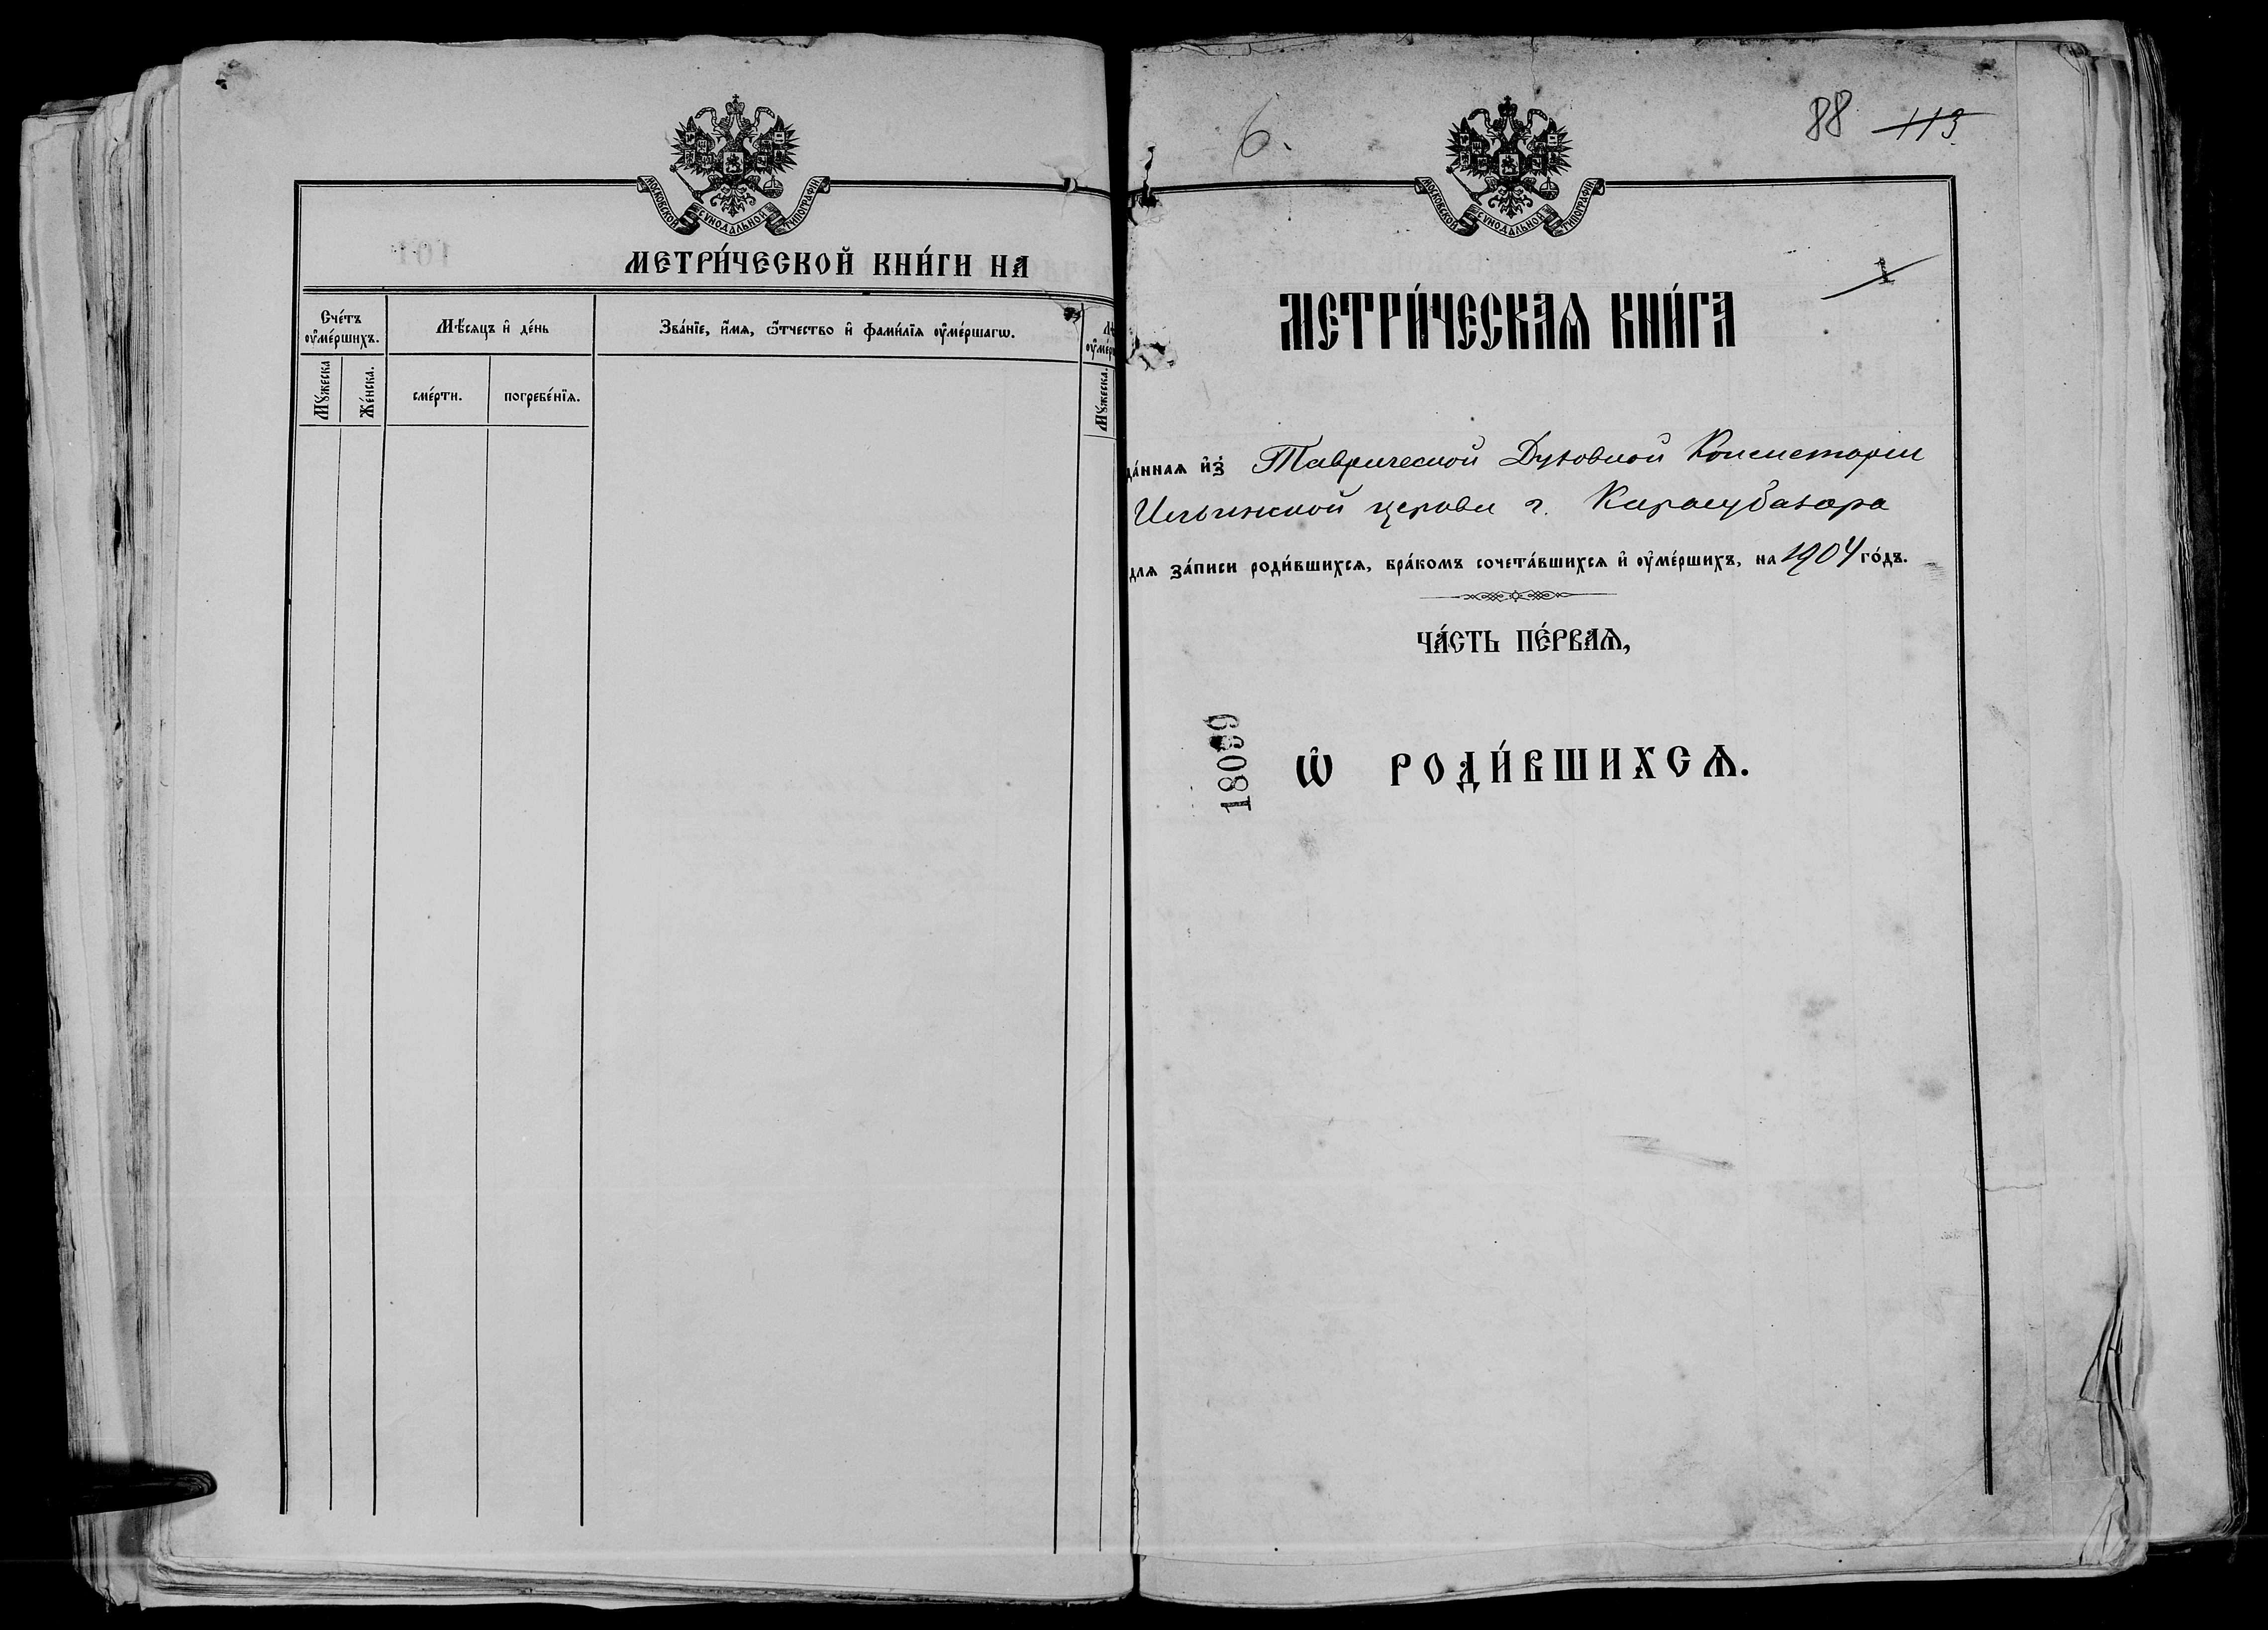 МОСКОВСКОЙ СѴНОДАЛЬНОЙ ТИПОГРАФІИ
МЕТРИ́ЧЕСКОЙ КНИ́ГИ НА
Сче́тъ оу҆ме́ршихъ.
Мѣ́сяцъ и҆ де́нь
Зва́нїе, и҆́мѧ, ѻ҆́тчество и҆ фами́лїѧ оу҆ме́ршагѡ.
Мꙋ́жеска
Же́нска.
сме́рти.
погребе́нїѧ.
Мꙋ́жеска.
6.
88 113
МОСКОВСКОЙ СѴНОДАЛЬНОЙ ТИПОГРАФІИ
1
МЕТРИ́ЧЕСКАѦ КНИ́ГА
да́ннаѧ и҆з̾ Таврической Духовной Консисторіи
Ильинской церкви г. Карасубазара
для за́писи роди́вшихсѧ, бра́комъ сочета́вшихсѧ и҆ оу҆ме́ршихъ, на 1904 го́дъ.
ЧА́СТЬ ПЕ́РВАѦ,
18099
Ѽ РОДИ́ВШИХСѦ.